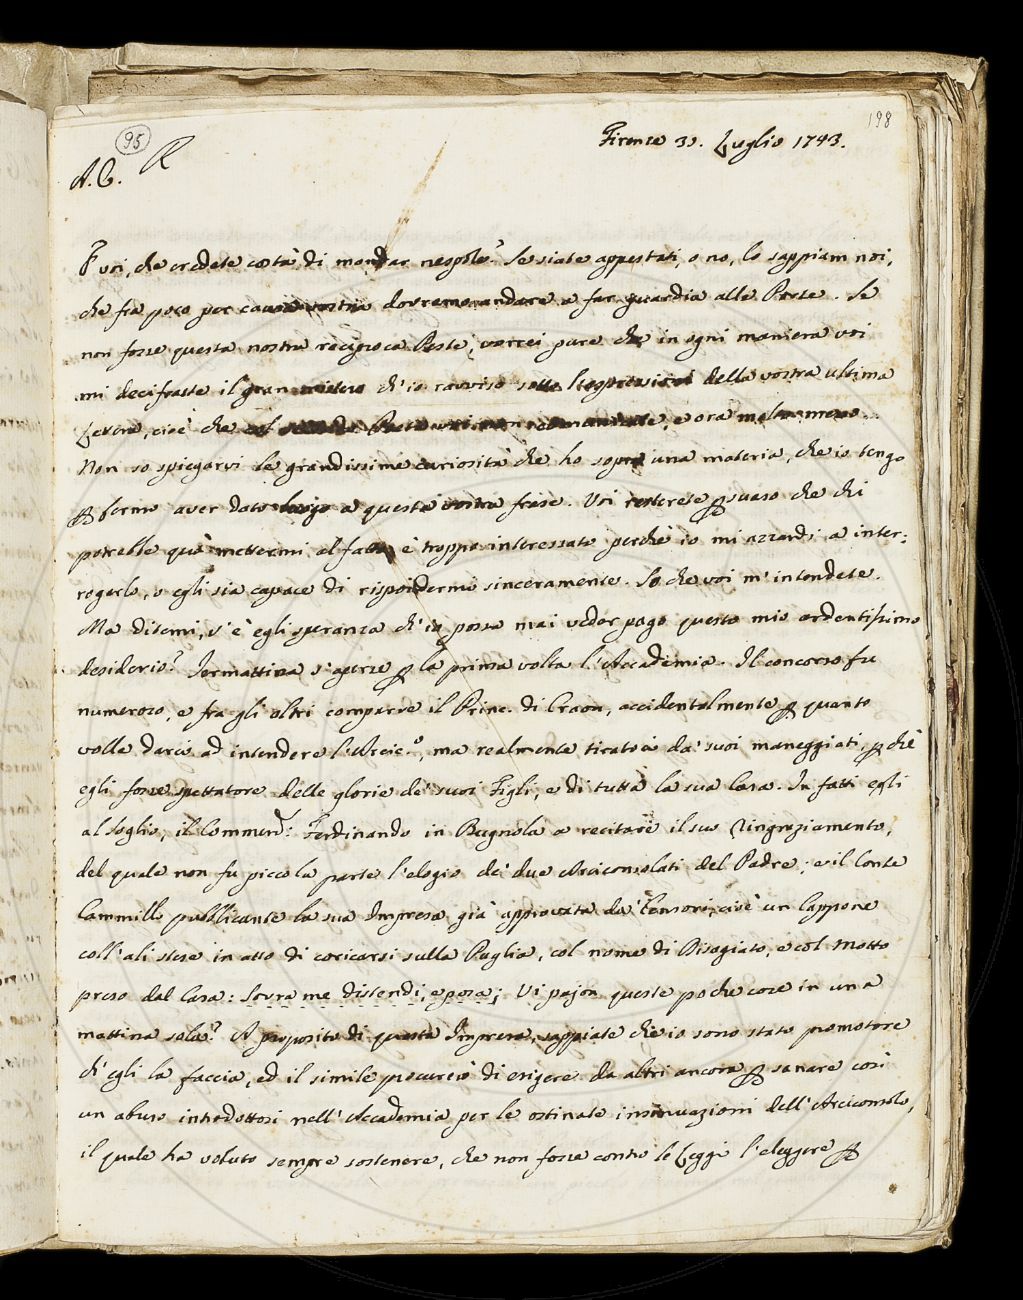 198
95
Firenze 31. Luglio 1743.
A. C. R
E voi, che credete costà di mondar nespole? Se siate appestati, o no, lo sappiam noi,
che fra poco per causa vostra dovremo andare a far guardia alle Porte. Se
non fosse questa nostra reciproca Peste, vorrei pure che in ogni maniera voi
mi decifraste il gran mistero ch'io ravviso sotto l'espressioni della vostra ultima
Lettera, cioè che e ora
Non so spiegarvi la grandissima curiosità che ho sopra una materia, che io tengo
p fermo aver dato luogo a questa vostra frase. Voi resterete psuaso che chi
potrebbe quà mettermi al fatto, è troppo interessato perchè io mi azzardi a inter:
rogarlo, o egli sia capace di rispondermi sinceramente. So che voi m'intendete.
Ma ditemi, v'è egli speranza ch'io possa mai veder pago questo mio ardentissimo
desiderio? Iermattina s'aperse p la prima volta l'Accademia. Il concorso fu
numeroso, e fra gli altri comparve il Princ. di Craon, accidentalmente p quanto
volle darci ad intendere l'Arcic.o, ma realmente tiratoci da' suoi maneggiati, p chè
egli fosse spettatore delle glorie de' suoi Figli, e di tutta la sua Casa. In fatti egli
al soglio, il Commend: Ferdinando in Bugnola a recitare il suo Ringraziamento,
del quale non fu piccola parte l'elogio de' due Arciconsolati del Padre; e il Conte
Cammillo pubblicante la sua Impresa già approvata da' Censori, cioè un Cappone
coll'ali stese in atto di coricarsi sulla Paglia, col nome di Disagiato, e col Motto
preso dal Casa: Sovra me distendi, e posa; Vi pajon queste poche cose in una
mattina sola? A proposito di questa Impresa, sappiate che io sono stato promotore
ch'egli la faccia, ed il simile procurerò di esigere da altri ancora p sanare così
un abuso introdottosi nell'Accademia per le ostinate insinuazioni dell'Arciconsolo,
il quale ha voluto sempre sostenere, che non fosse contro le Leggi l'eleggere p